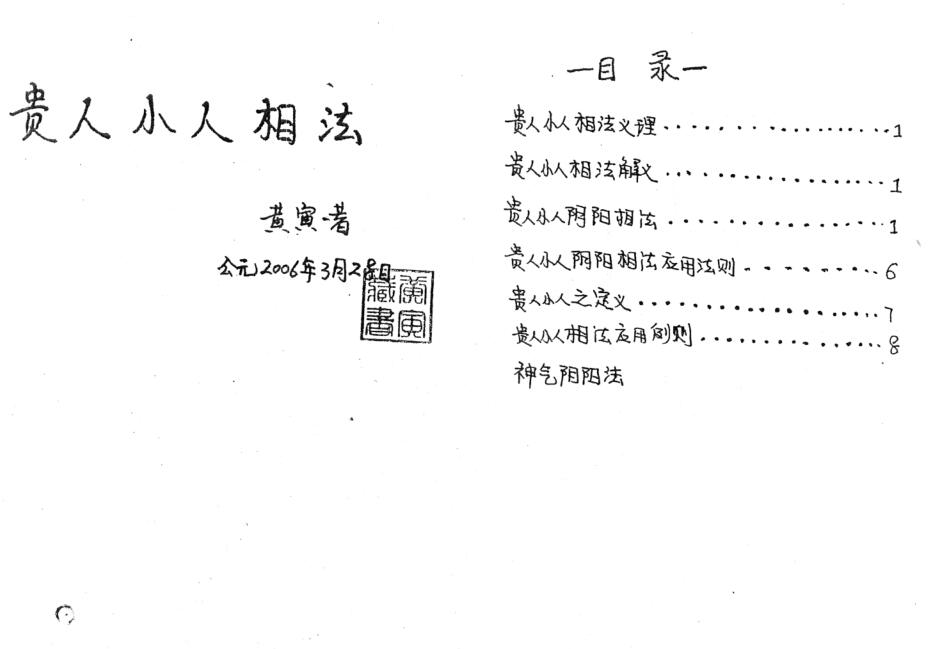 贵人小人相法
黄寅著
公元2006年3月28日
黄寅藏書
一目 录一
贵人小人相法义理....................1
贵人小人相法解义....................1
贵人小人阴阳相法....................1
贵人小人阴阳相法应用法则..........6
贵人小人之定义....................7
贵人小人相法应用例则...............8
神气阴阳法